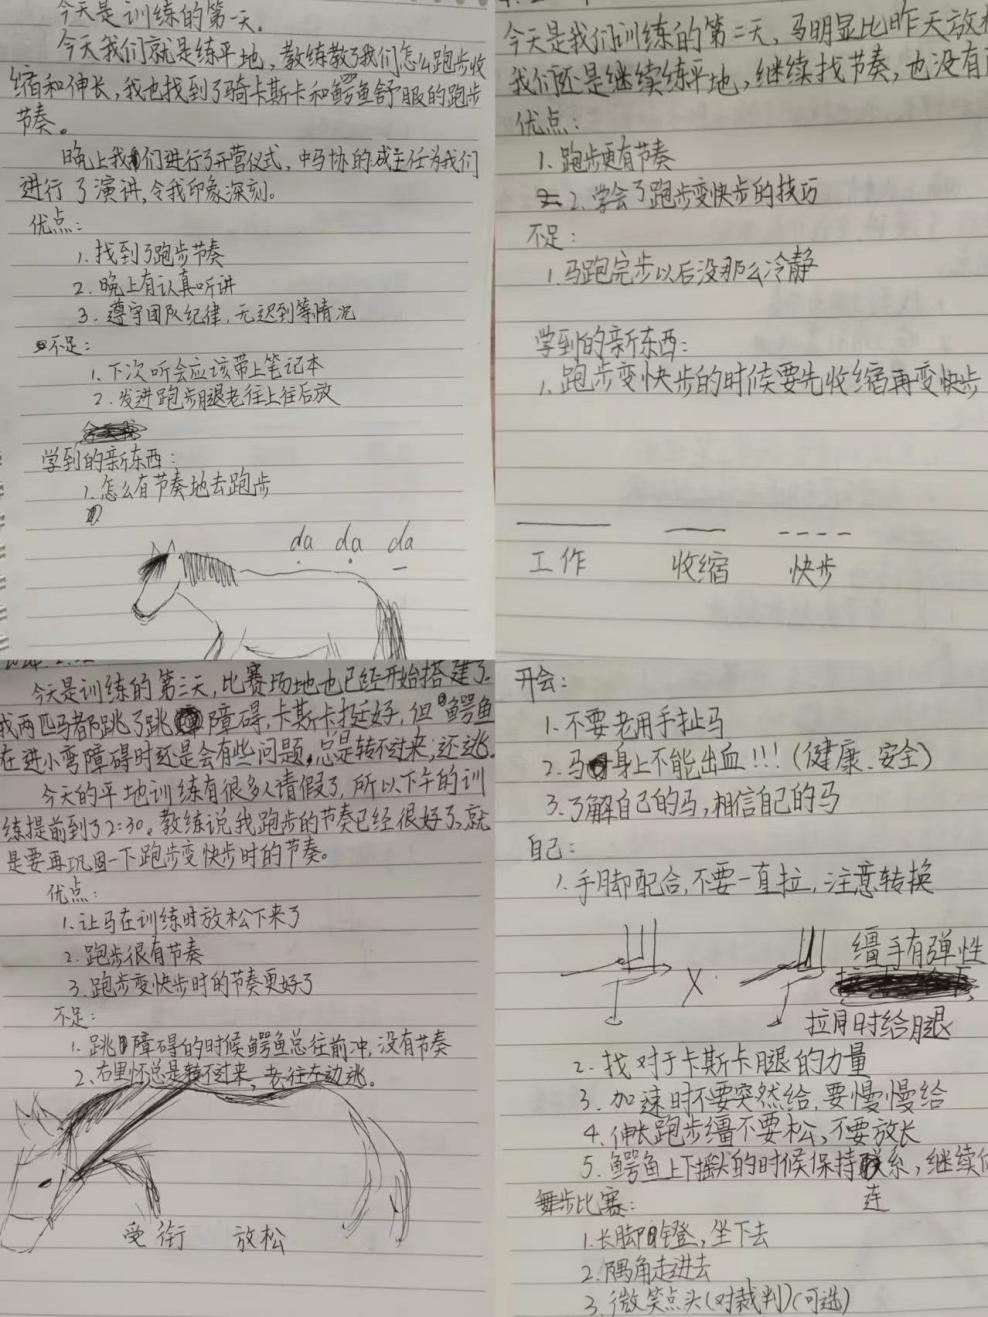 今天是训练的第一天。
今天我们就是练平地，教练教了我们怎么跑步收
缩和伸长，我也找到了骑卡斯卡和鳄鱼舒服的跑步
节奏。
晚上我们进行了开营仪式，中马协的成主任为我们
进行了演讲，令我印象深刻。
优点：
1. 找到了跑步节奏
2. 晚上有认真听讲
3. 遵守团队纪律，无迟到等情况
不足：
1. 下次听会应该带上笔记本
2. 发进跑步腿老往上往后放
学到的新东西：
1. 怎么有节奏地去跑步
da da da
今天是我们训练的第二天，马明显比昨天放
我们还是继续练平地，继续找节奏，也没有
优点：
1. 跑步更有节奏
2. 学会了跑步变快步的技巧
不足：
1. 马跑完步以后没那么冷静
学到的新东西：
1. 跑步变快步的时候要先收缩再变快步
工作 收缩 快步
今天是训练的第三天，比赛场地也已经开始搭建了。
我两匹马都跳了跳障碍，卡斯卡挺好，但鳄鱼
在进小弯障碍时还是会有些问题，总是转不过来，还逃。
今天的平地训练有很多人请假了，所以下午的训
练提前到了2:30。教练说我跑步的节奏已经很好了，就
是要再巩固一下跑步变快步时的节奏。
优点：
1. 让马在训练时放松下来了
2. 跑步很有节奏
3. 跑步变快步时的节奏更好了
不足：
1. 跳障碍的时候鳄鱼总往前冲，没有节奏
2. 右里怀总是转不过来，老往左边逃。
受衔 放松
开会：
1. 不要老用手扯马
2. 马身上不能出血！！！（健康、安全）
3. 了解自己的马，相信自己的马
自己：
1. 手脚配合，不要一直拉，注意转换
X
缰手有弹性
拉用时给腿
2. 找对于卡斯卡腿的力量
3. 加速时不要突然给，要慢慢给
4. 伸长跑步缰不要松，不要放长
5. 鳄鱼上下摇头的时候保持联系，继续
连
舞步比赛：
1. 长脚镫，坐下去
2. 隅角走进去
3. 微笑点头（对裁判）（可选）